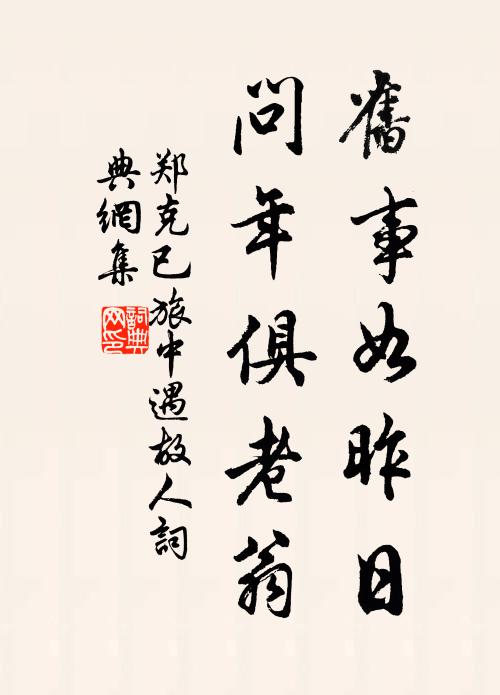 舊事如昨日
問年俱老翁
郑克已旅中遇故人詞
典網集
詞典
网印